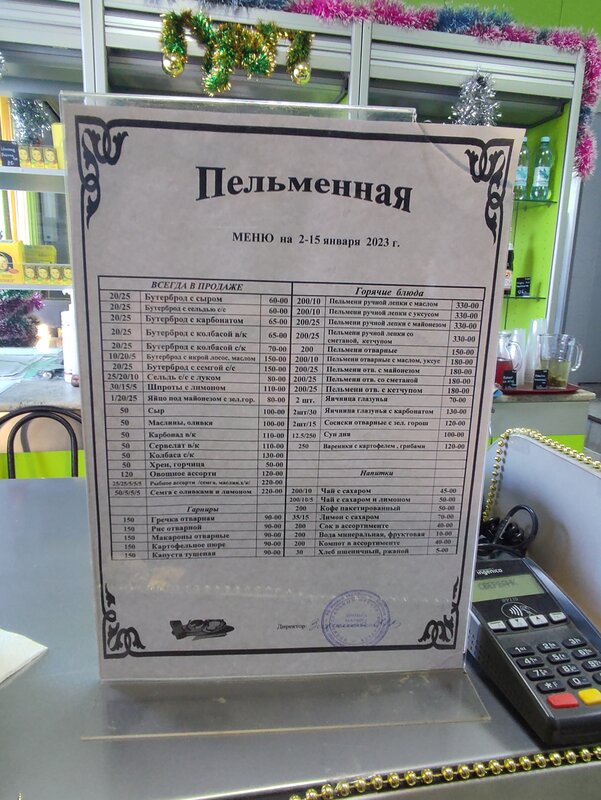 Пельменная
МЕНЮ на 2-15 января 2023 г.
ВСЕГДА В ПРОДАЖЕ
20/25 Бутерброд с сыром 60-00
20/25 Бутерброд с сельдью с/с 60-00
20/25 Бутерброд с карбонатом 65-00
20/25 Бутерброд с колбасой в/к 65-00
20/25 Бутерброд с колбасой с/к 70-00
10/20/5 Бутерброд с икрой лосос, маслом 150-00
20/25 Бутерброд с семгой с/с 150-00
25/20/10 Сельдь с/с с луком 80-00
30/15/5 Шпроты с лимоном 110-00
1/20/25 Яйцо под майонезом с зел.гор. 80-00
50 Сыр 100-00
50 Маслины, оливки 100-00
50 Карбонад в/к 110-00
50 Сервелат в/к 110-00
50 Колбаса с/к 130-00
50 Хрен, горчица 50-00
120 Овощное ассорти 120-00
25/25/5/5/5 Рыбное ассорти /семга, маслин,х/к/ 220-00
50/5/5/5 Семга с оливками и лимоном 220-00
Гарниры
150 Гречка отварная 90-00
150 Рис отварной 90-00
150 Макароны отварные 90-00
150 Картофельное пюре 90-00
150 Капуста тушеная 90-00
Горячие блюда
200/10 Пельмени ручной лепки с маслом 330-00
200/10 Пельмени ручной лепки с уксусом 330-00
200/25 Пельмени ручной лепки с майонезом 330-00
200/25 Пельмени ручной лепки со сметаной, кетчупом 330-00
200 Пельмени отварные 150-00
200/10 Пельмени отварные с маслом, уксус 180-00
200/25 Пельмени отв. с майонезом 180-00
200/25 Пельмени отв. со сметаной 180-00
200/25 Пельмени отв. с кетчупом 180-00
2 шт. Яичница глазунья 70-00
2шт/30 Яичница глазунья с карбонатом 130-00
2шт/15 Сосиски отварные с зел. горош 120-00
12.5/250 Суп дня 100-00
250 Вареники с картофелем , грибами 120-00
Напитки
200/10 Чай с сахаром 45-00
200/10/5 Чай с сахаром и лимоном 50-00
200 Кофе пакетированный 50-00
35/15 Лимон с сахаром 70-00
200 Сок в ассортименте 40-00
200 Вода минеральная, фруктовая 10-00
200 Компот в ассортименте 40-00
30 Хлеб пшеничный, ржаной 5-00
Директор
ingenico
СБЕРБАНК